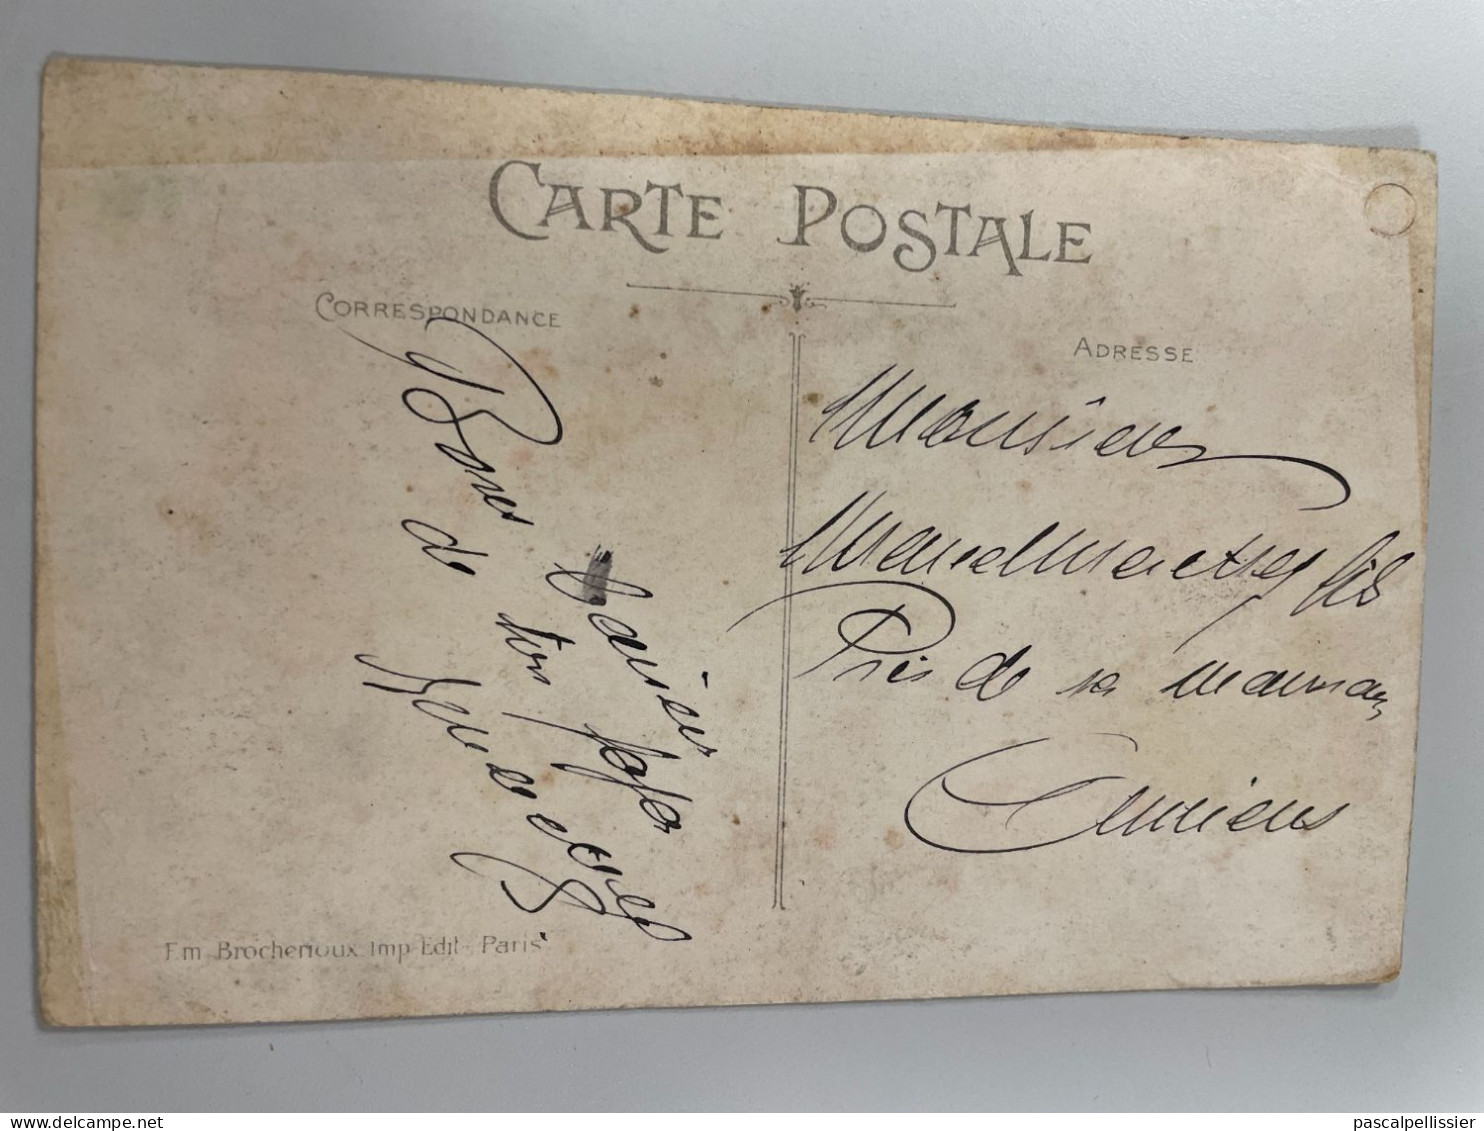 CARTE POSTALE
CORRESPONDANCE
ADRESSE
Bons baisers
de ton papa
Monsieur
Marcel fils
Près de sa maman
Amiens
Em Brocherioux Imp-Edit-Paris
delcampe.net
pascalpellissier